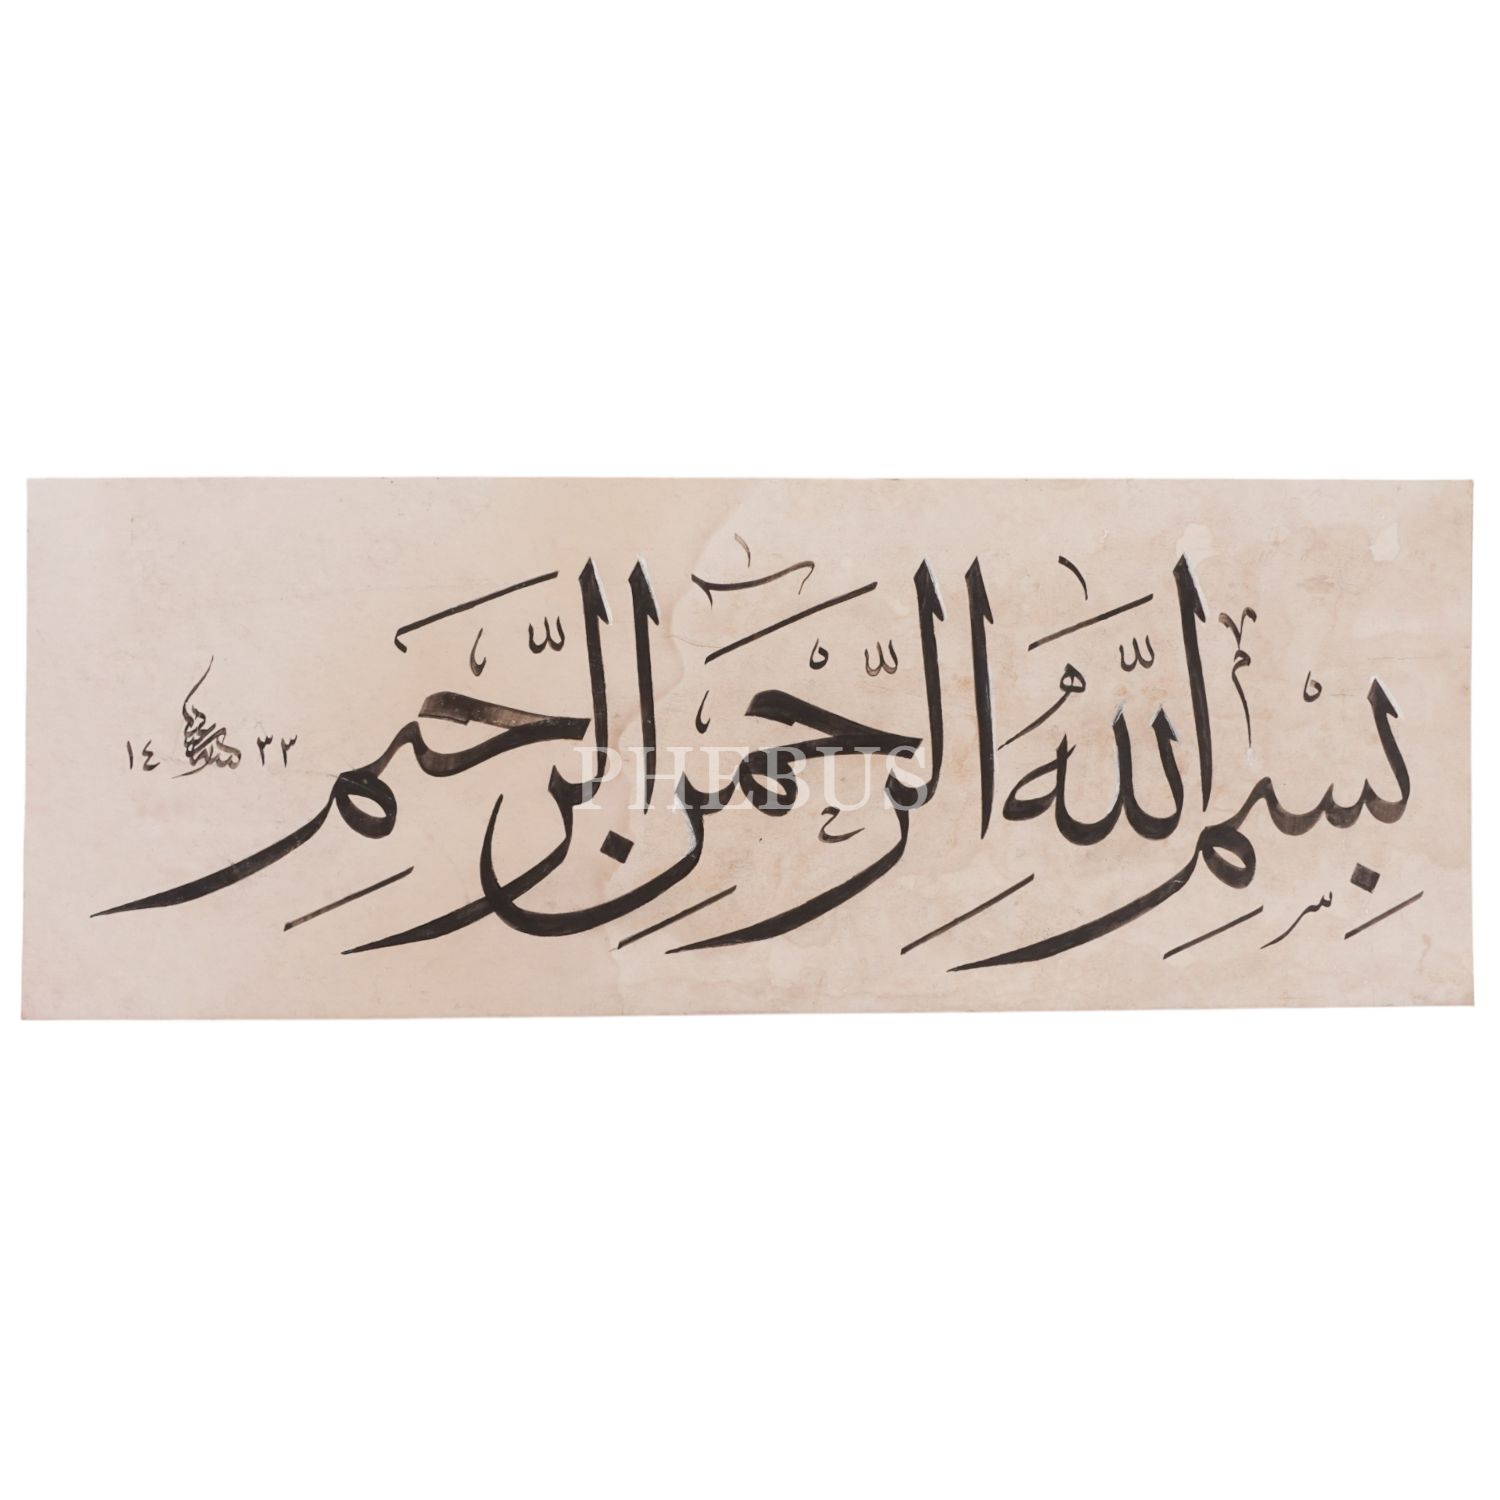 بِسْمِ اللَّهِ الرَّحْمَنِ الرَّحِيمِ
١٤ ٣٣
PHEBUS